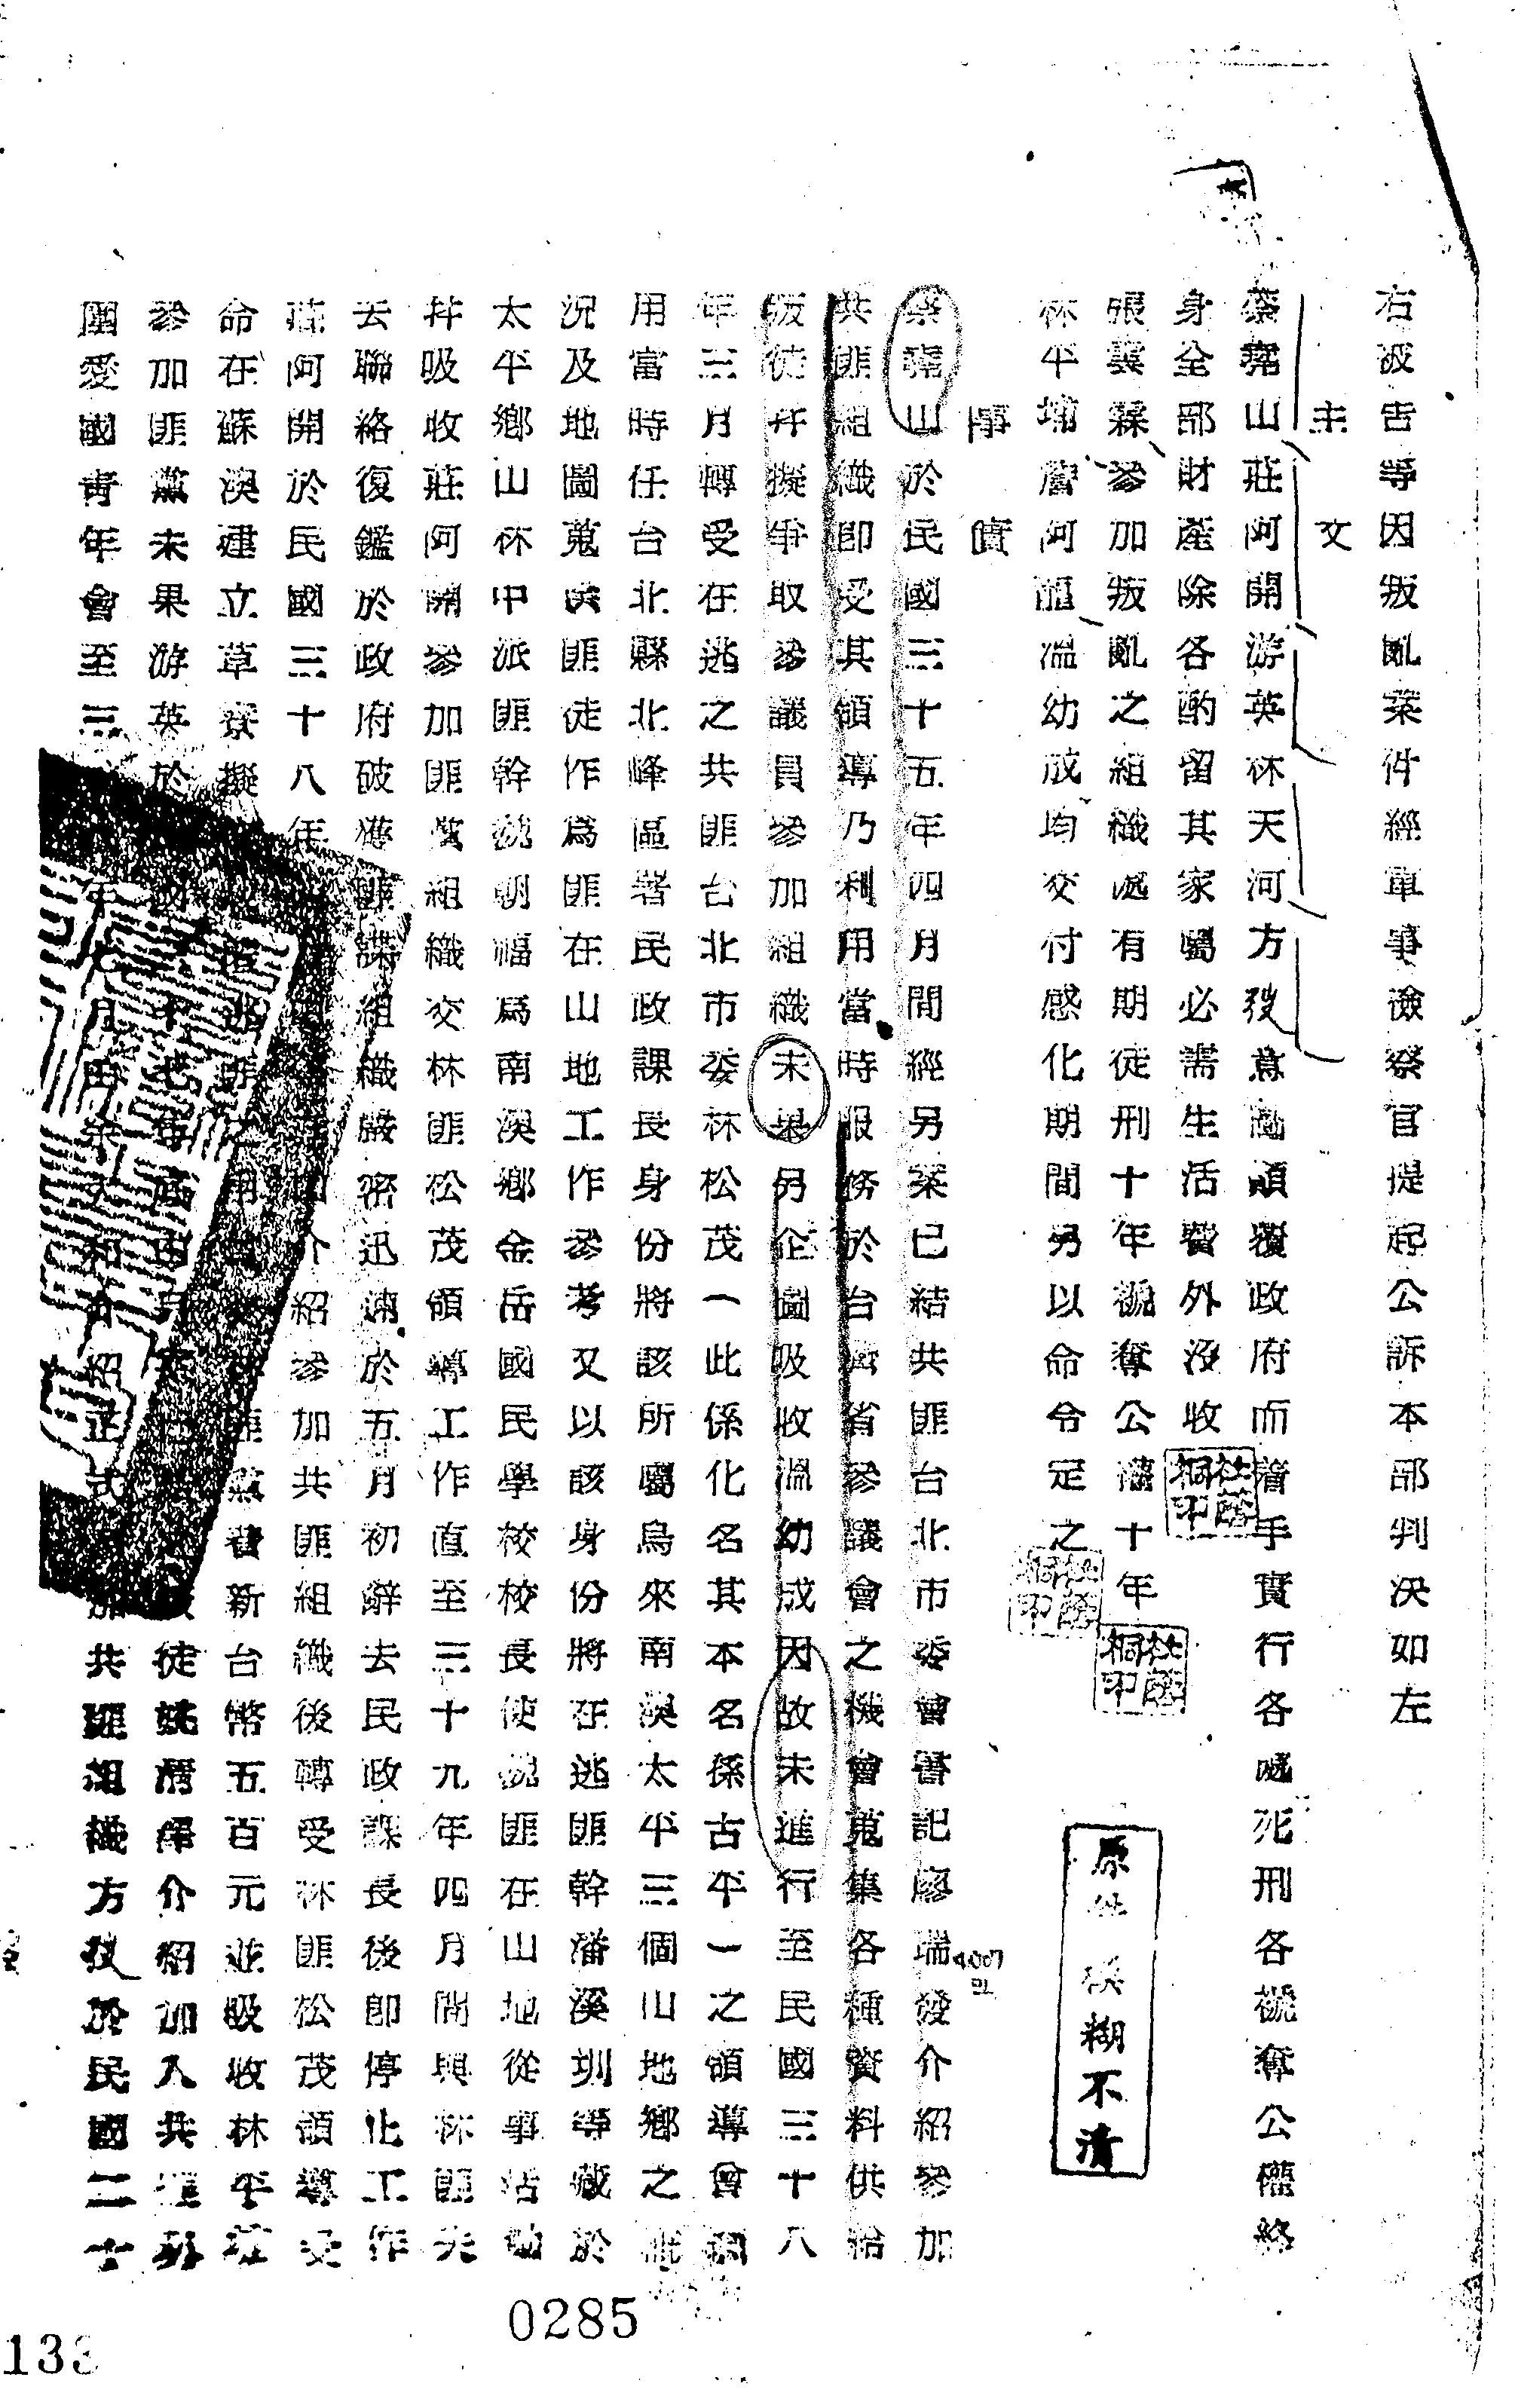 右被告等因叛亂案件經軍事檢察官提起公訴本部判決如左
主文
蔡堯山莊阿開游英林天河方狡意圖顛覆政府而着手實行各處死刑各褫奪公權終
身全部財產除各酌留其家屬必需生活費外沒收
張雲霖參加叛亂之組織處有期徒刑十年褫奪公權十年
林平埔詹阿龍溫幼成均交付感化期間另以命令定之
事實
蔡堯山於民國三十五年四月間經另案已結共匪台北市委會書記廖瑞發介紹參加
共匪組織即受其領導乃利用當時服務於台灣省參議會之機會蒐集各種資料供給
叛徒并擬爭取參議員參加組織未果另企圖吸收溫幼成因故未進行至民國三十八
年三月轉受在逃之共匪台北市委林松茂一此係化名其本名係古平一之領導曾
用富時任台北縣北峰區署民政課長身份將該所屬烏來南澳太平三個山地鄉之
況及地圖蒐供匪徒作為匪在山地工作參考又以該身份將在逃匪幹潘溪圳等藏於
太平鄉山林中派匪幹沈朝福為南澳鄉金岳國民學校校長使匪在山地從事活動
并吸收莊阿開參加匪黨組織交林匪松茂領導工作直至三十九年四月間與林匪失
去聯絡復鑑於政府破獲匪諜組織嚴密迅速於五月初辭去民政課長後即停止工作
莊阿開於民國三十八年 介紹參加共匪組織後轉受林匪松茂領導受
命在蘇澳建立草寮擬 匪黨費新台幣五百元並吸收林平埔
參加匪黨未果游英於 徒 介紹加入共匪
團愛國青年會至三 年七月由 紹正式 加共匪組織方狡於民國二十
原件模糊不清
0285
133